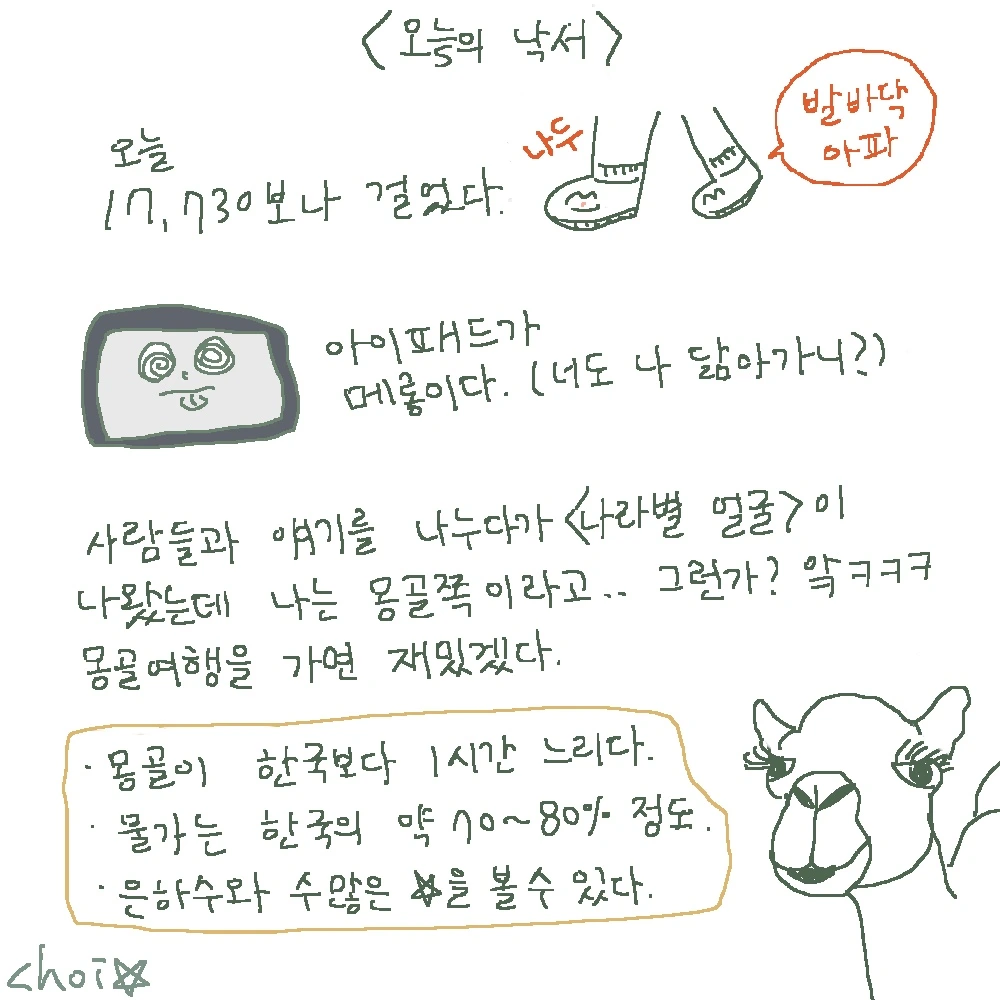 <오늘의 낙서>
오늘
17,730보나 걸었다.
나두
발바닥
아파
아이패드가
메롱이다. (너도 나 닮아가니?)
사람들과 얘기를 나누다가 <나라별 얼굴>이
나왔는데 나는 몽골쪽이라고.. 그런가? 악ㅋㅋㅋ
몽골여행을 가면 재밌겠다.
· 몽골이 한국보다 1시간 느리다.
· 물가는 한국의 약 70~80% 정도.
· 은하수와 수많은 ☆을 볼 수 있다.
choi☆